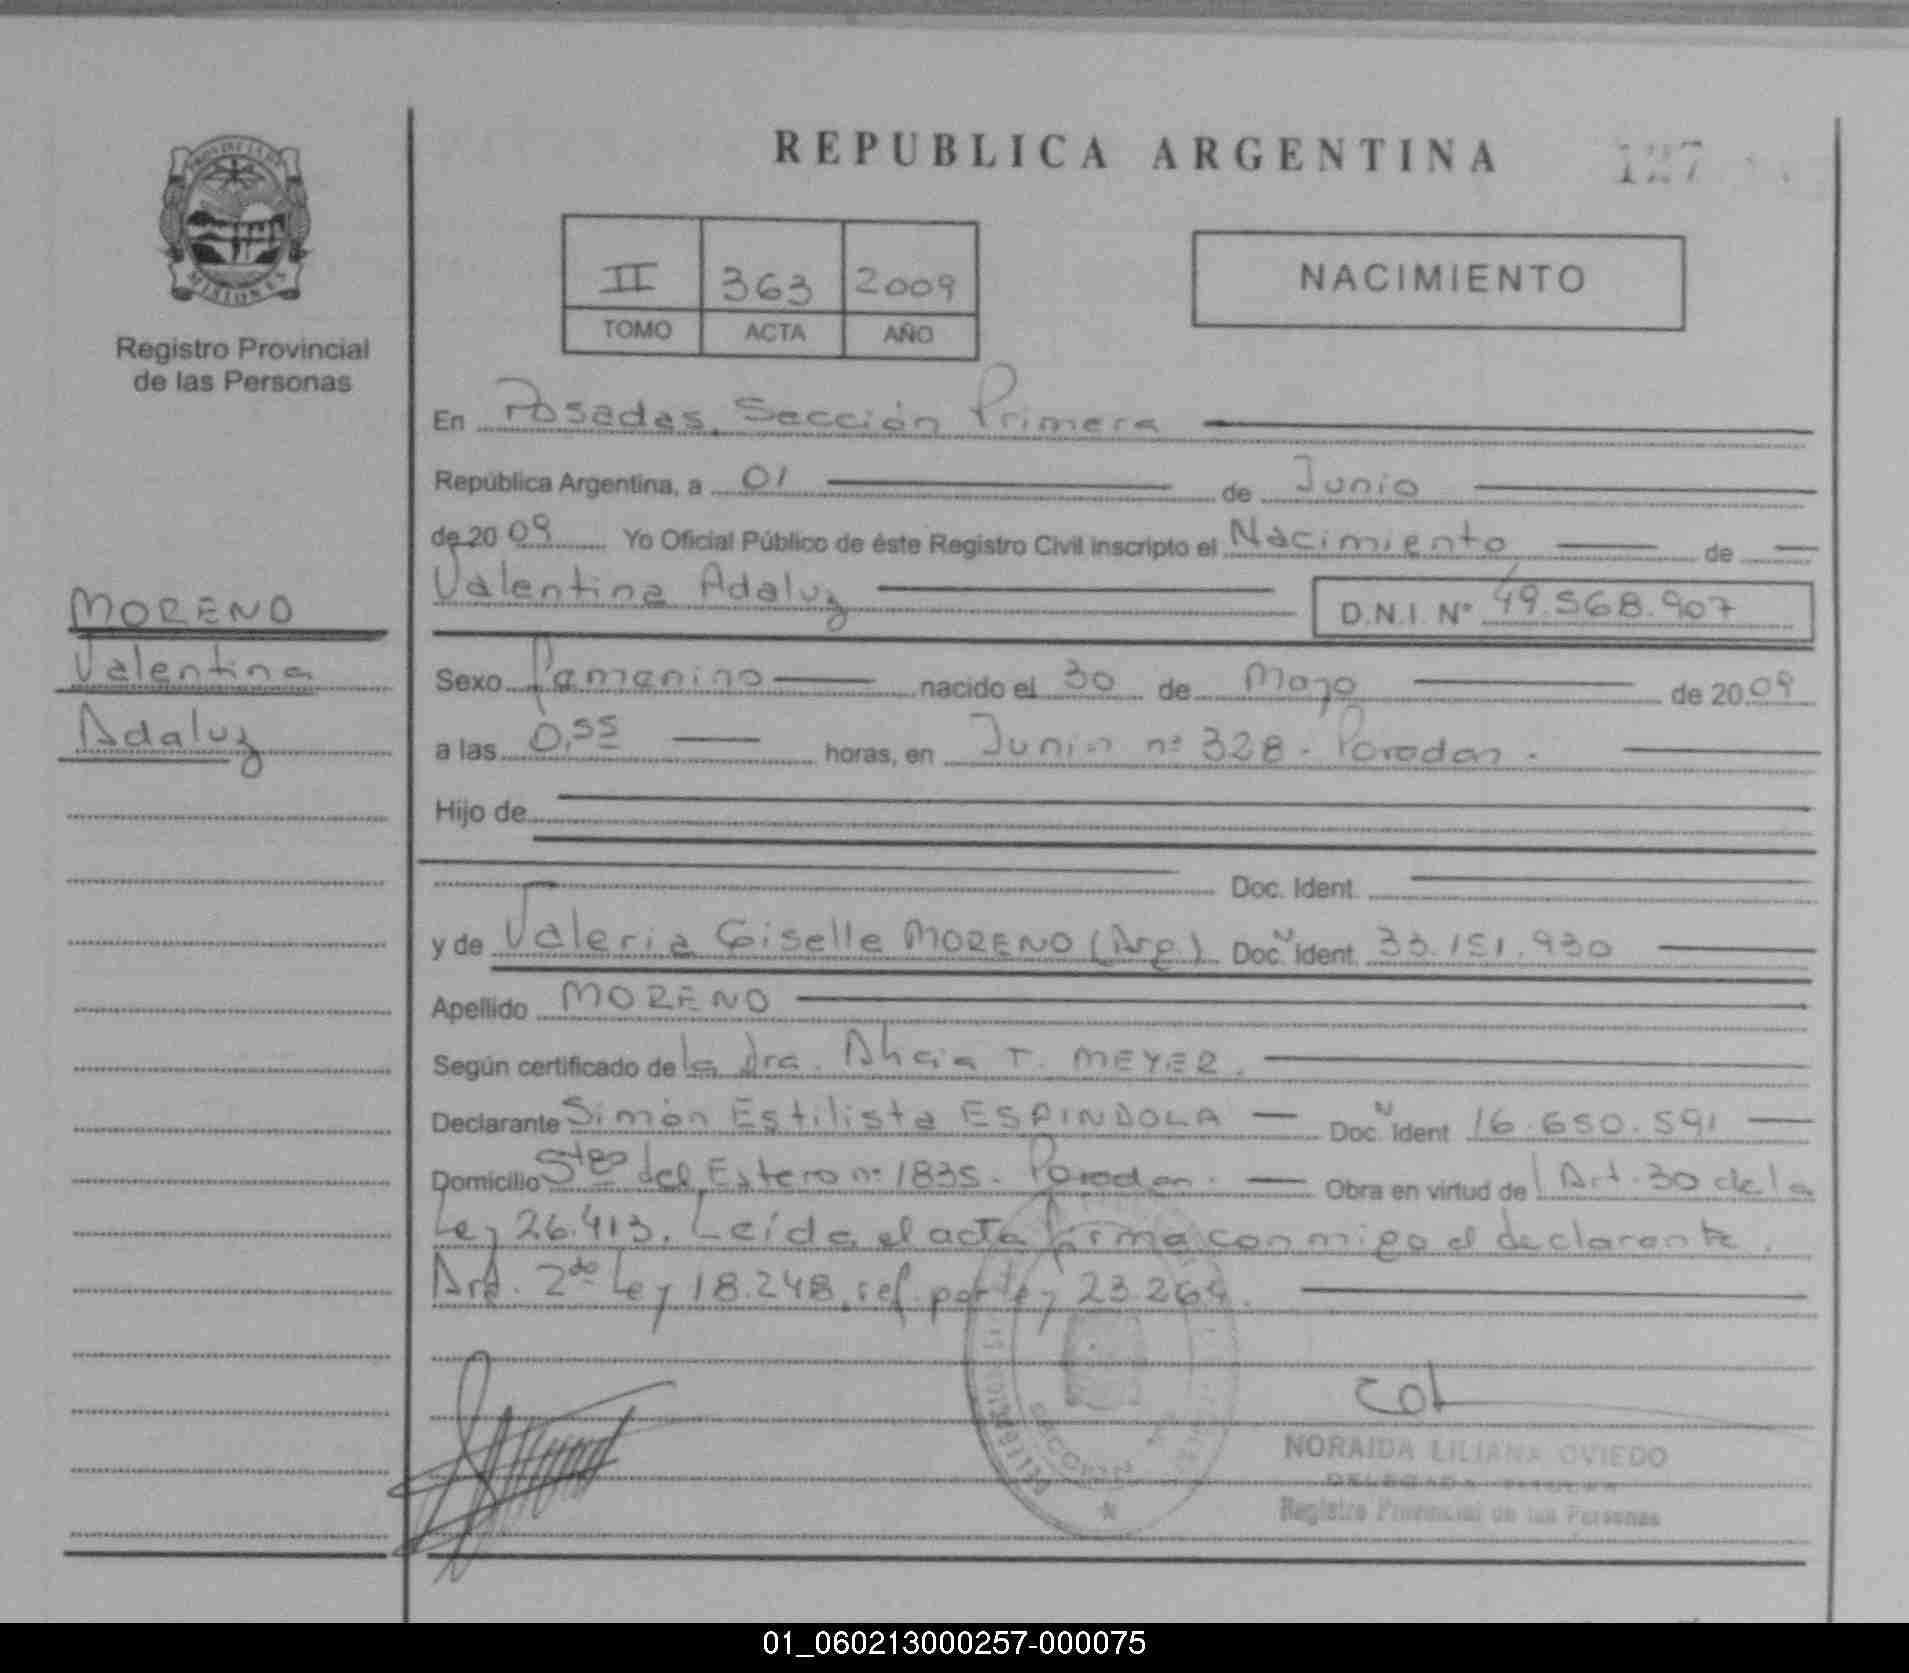 REPUBLICA ARGENTINA
127
PROVINCIA DE
MISIONES
Registro Provincial
de las Personas
II 363 2009
TOMO ACTA AÑO
NACIMIENTO
En Posadas, Sección Primera
República Argentina, a 01 de Junio
de 2009 Yo Oficial Público de éste Registro Civil inscripto el Nacimiento de
Valentina Adaluz D.N.I. Nº 49.568.907
MORENO
Valentina
Adaluz
Sexo Femenino nacido el 30 de Mayo de 2009
a las 0,55 horas, en Junin nº 328 - Posadas.
Hijo de
Doc. Ident.
y de Valeria Giselle MORENO (Arg.) Doc. Ident. 33.151.930
Apellido MORENO
Según certificado de la Dra. Alicia T. MEYER.
Declarante Simón Estilista ESPINDOLA Doc. Ident 16.650.591
Domicilio Stgo del Estero nº 1835 - Posadas. Obra en virtud del Art. 30 de la
Ley 26.413. Leída el acta firma conmigo el declarante.
Art. 2do Ley 18.248, ref. por ley 23.264.
NORAIDA LILIANA OVIEDO
DELEGADA TITULAR
Registro Provincial de las Personas
01_060213000257-000075